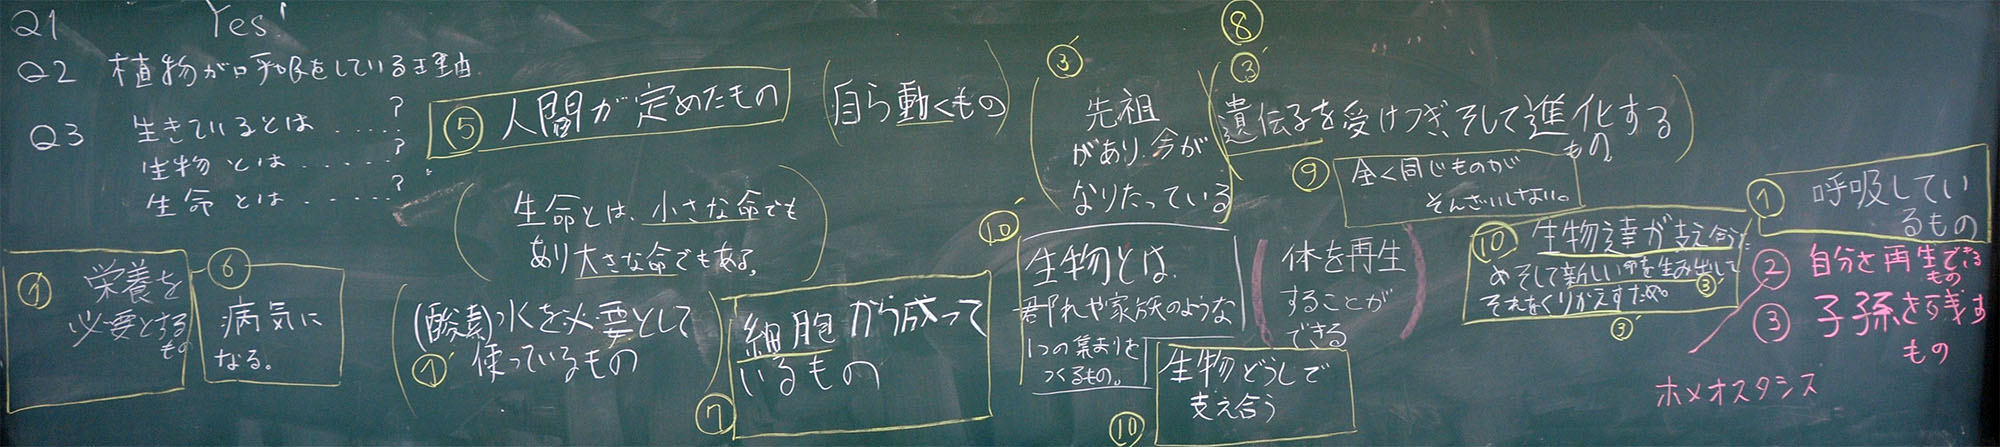 Q1 Yes!
Q2 植物が呼吸をしている理由
Q3 生きているとは ‥‥‥?
生物とは ‥‥‥?
生命とは ‥‥‥?
⑤ 人間が定めたもの
(自ら動くもの)
③'
先祖
があり、今が
なりたっている
⑧
③'
遺伝子を受けつぎ、そして進化する
もの
⑨ 全く同じものが
そんざいしない。
(生命とは、小さな命でも
あり大きな命でもある。)
①'
栄養を
必要とする
もの
⑥
病気に
なる。
(酸素)水を必要として
使っているもの
①'
⑦
細胞から成って
いるもの
⑩'
生物とは、
群れや家族のような
1つの集まりを
つくるもの。
(体を再生
することが
できる)
⑩
生物どうしで
支え合う
⑩ 生物達が支え合う
め そして新しい命を生み出して
③'
それをくりかえすため。
③'
① 呼吸してい
るもの
② 自分を再生できる
もの
③ 子孫を残す
もの
ホメオスタシス